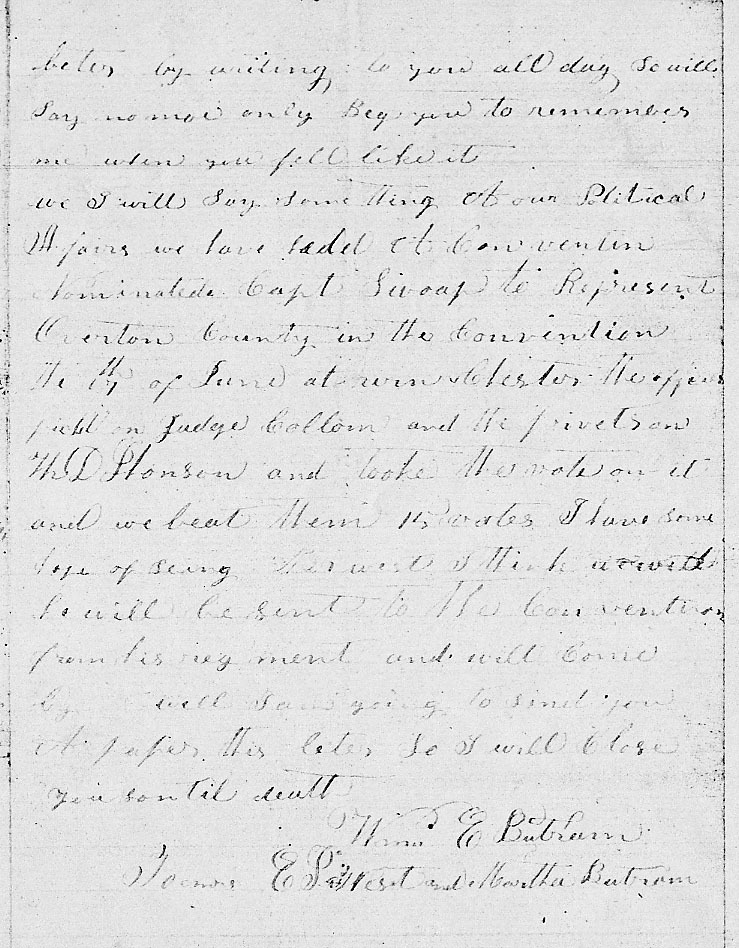 beter by writing to you all day so will
Say no moi only Beg you to remember
me when you fell like it
we I will Say some tting A our Political
Affairs we have hadd A Convention
Nominated Capt Swoap to Represent
Overton County in the Convention
the 17 of June at winchester the
on Judge Collom and the privets on
and tooke the vote on it
and we beat them 15 votes I have some
hope of seing I think
he will be sent to the Convention
from his regment and will Come
by well I am going to send you
A paper this leter So I will Close
you son til deatt
Wm E Butram
To E West and Martha Butram